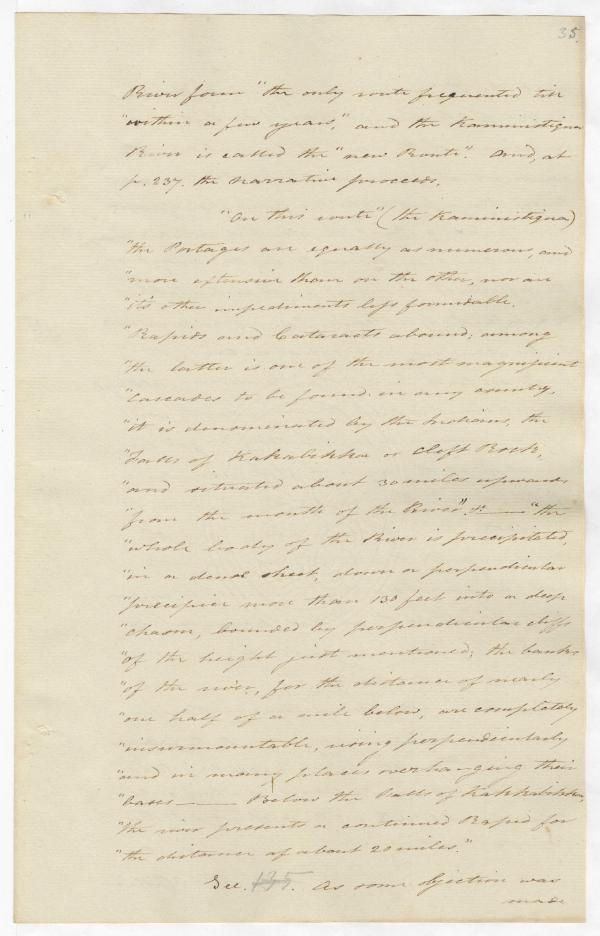 35.
River form "the only route frequented till
"within a few years," and the Kaministiqua
River is called the "new Route". And, at
p. 237. the narrative proceeds.
"On this route" (the Kaministiqua)
"the Portages are equally as numerous, and
"more extensive than on the other, nor are
"its other impediments less formidable.
"Rapids and Cataracts abound; among
"the latter is one of the most magnificent
"Cascades to be found in any country,
"it is denominated by the Indians, the
"Falls of Kakabikka or Cleft Rock,
"and situated about 30 miles upwards
"from the mouth of the River" &c —— "the
"whole body of the River is precipitated,
"in a dense sheet, down a perpendicular
"precipice more than 130 feet into a deep
"chasm, bounded by perpendicular cliffs
"of the height just mentioned; the banks
"of the river, for the distance of nearly
"one half of a mile below, are completely
"insurmountable, rising perpendicularly
"and in many places overhanging their
"bases —— Below the Falls of Kakkabikka,
"the river presents a continued Rapid for
"the distance of about 20 miles."
Sec. 135. As some objection was
made